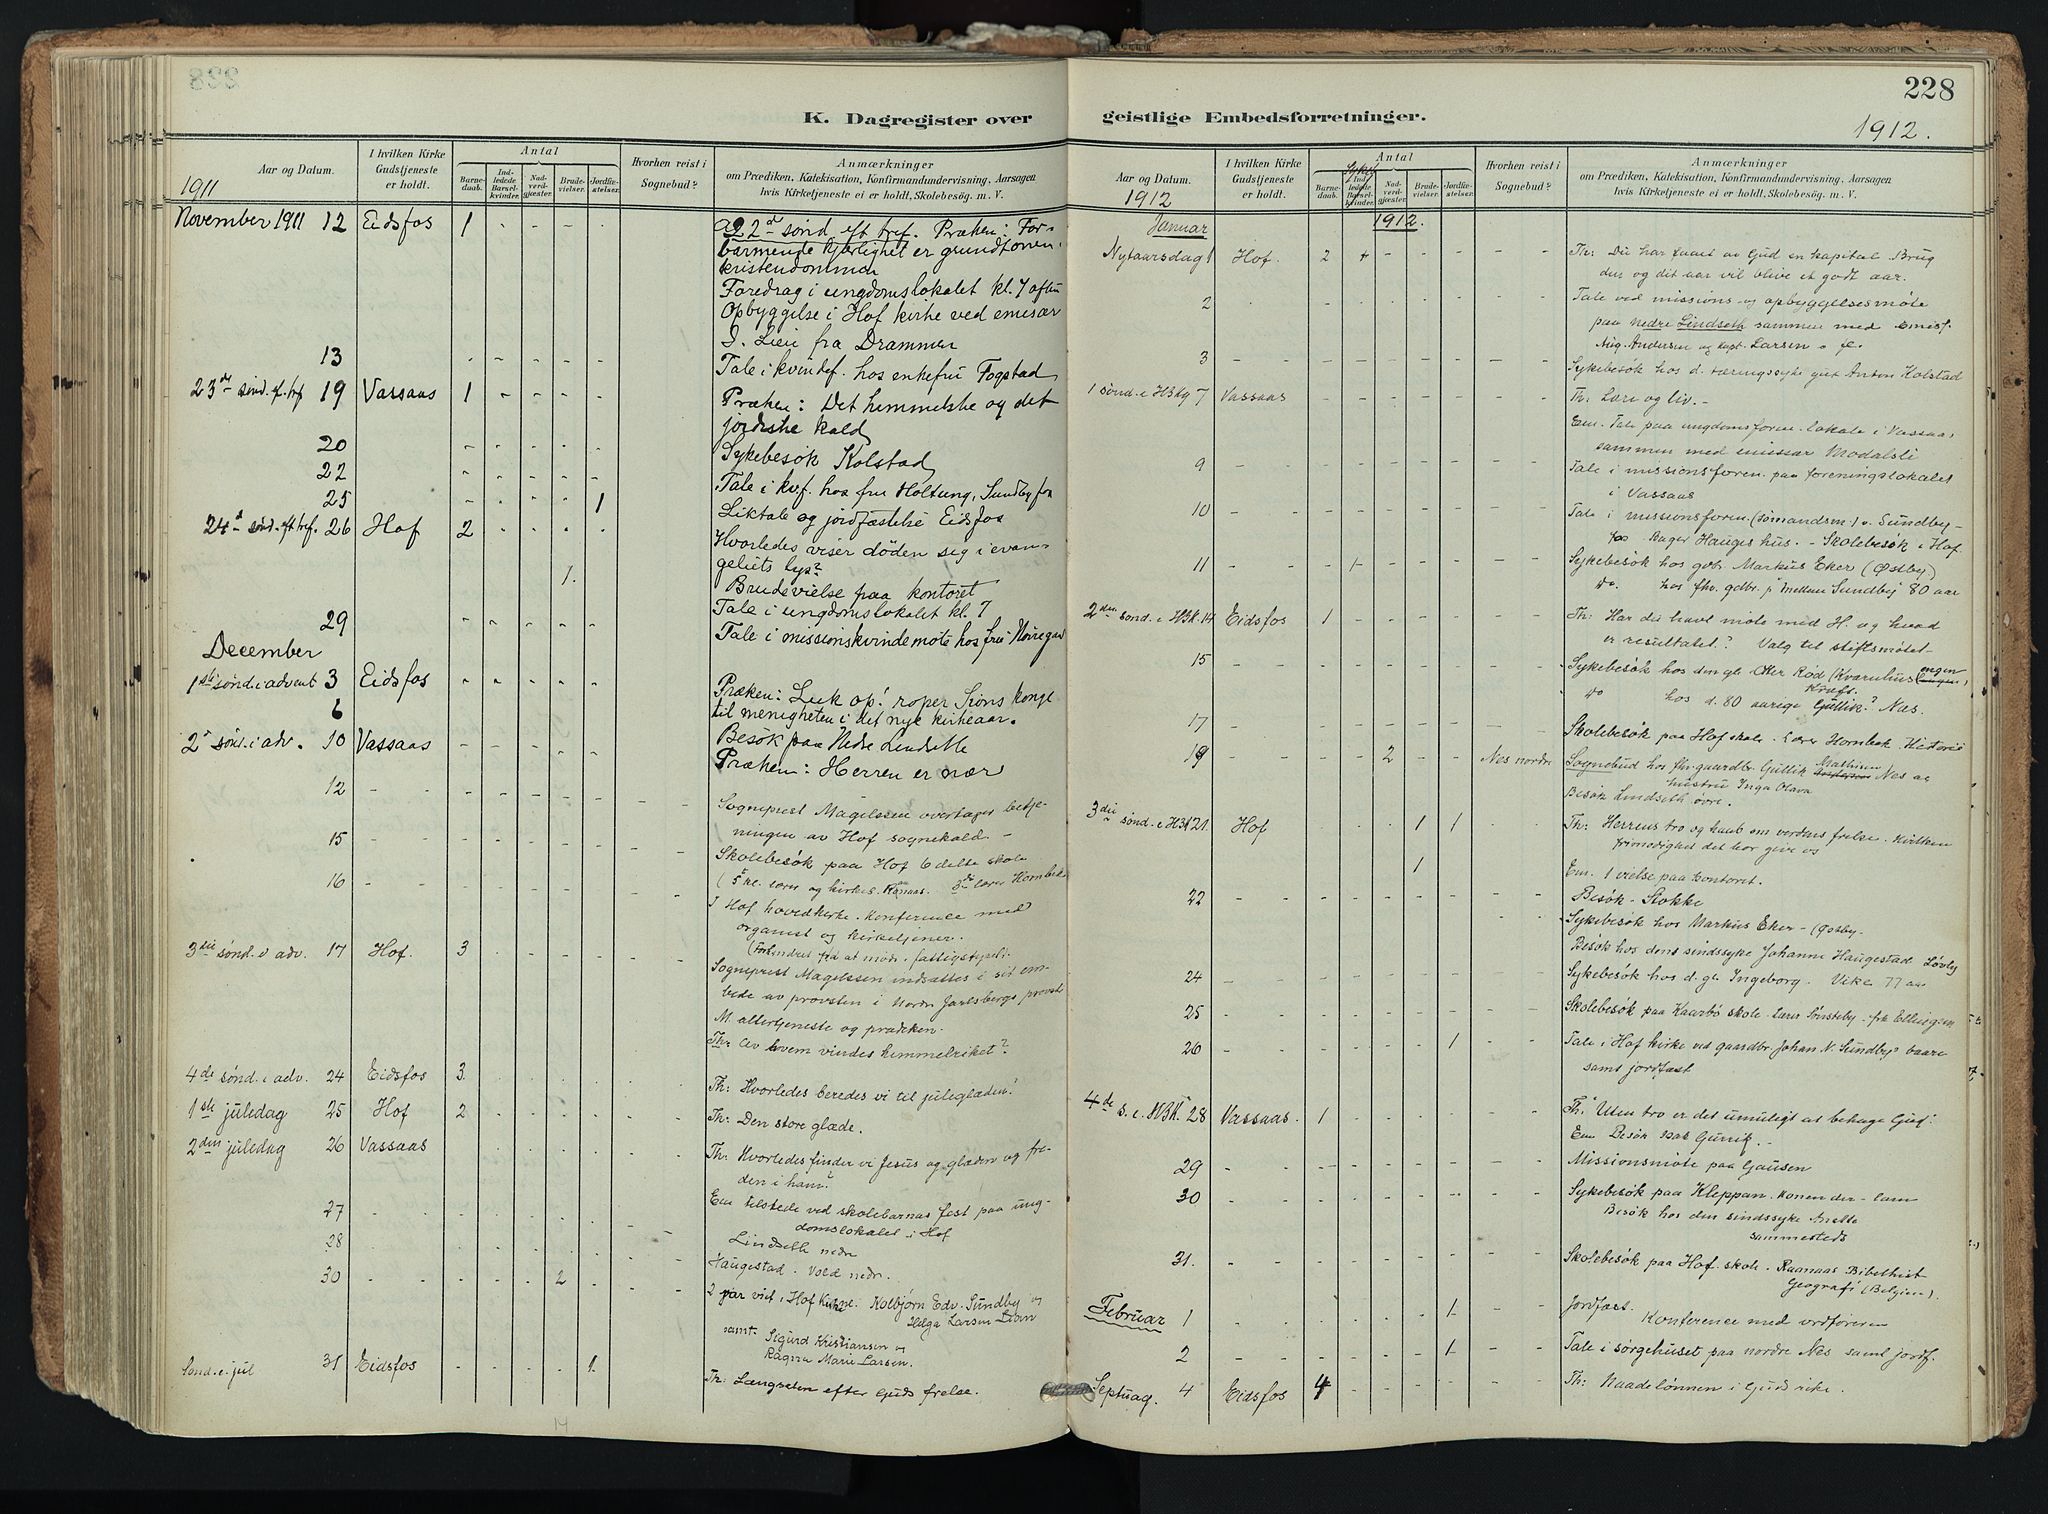 228
K. Dagregister over
Aar og Datum.
I hvilken Kirke Gudstjeneste er holdt.
Antal
Barnedaab.
Indledede Barselkvinder.
Nadverdgjæster.
Brudevielser.
Jordfæstelser.
Hvorhen reist i Sognebud?
Anmærkninger
om Prædiken, Katekisation, Konfirmandundervisning, Aarsagen
hvis Kirketjeneste ei er holdt, Skolebesög. m. V.
1911
November 1911 12 Eidsfos 1 - - - -
22d sønd eft tref. Præken: For-
barmende kjærlighet er grundtonen i
kristendommen
Foredrag i ungdomslokalet kl. 7 aften
Opbyggelse i Hof kirke ved emisær
J. Lien fra Drammen
13 Tale i kvindef. hos enkefru Fogstad
23de sønd. ef. tref 19 Vassaas 1 - - - -
Præken: Det himmelske og det
jordiske kald
20 Sykebesøk Kolstad
22 Tale i kvf. hos fru Holtung, Sundbyfos
25 - - - - 1 Liktale og jordfæstelse Eidsfos
24d sønd. eft tref. 26 Hof 2 - - - -
Hvorledes viser døden sig i evan-
geliets lys?
1. Brudevielse paa kontoret
Tale i ungdomslokalet kl. 7
29 Tale i missionskvindemøte hos fru
December
1ste sønd. i advent 3 Eidsfos - - - - -
Præken: Luk op! roper Sions konge
til menigheten i det nye kirkeaar.
6 Besøk paa Nedre Lindseth
2d sønd. i adv. 10 Vassaas - - - - -
Præken: Herren er nær
12 Sogneprest Magelssen overtager betje-
ningen av Hof sognekald. -
15 Skolebesøk paa Hof 6 delte skole
(5te kl. lærer og kirkes. Raanaas. 3de lærer Hornbæk
16 I Hof hovedkirke. Konference med
organist og kirketjener.
(Forhindret fra at møde i fattigstyrel.)
3die sønd. i adv. 17 Hof. 3 - - - -
Sogneprest Magelssen indsættes i sit em-
bede av provsten i Nordr. Jarlsbergs provsti
M. altertjeneste og prædiken.
Th: Av hvem vindes himmelriket?
4de sønd. i adv. 24 Eidsfos 3. - - - -
Th: Hvorledes beredes vi til juleglæden?
1ste juledag 25 Hof 2 - - - -
Th: Den store glæde.
2den juledag 26 Vassaas
Th: Hvorledes finder vi Jesus og glæden og fre-
den i ham?
27 Em tilstede ved skolebarnas fest paa ung-
domslokalet i Hof
28 Lindseth nedre
30 - - - 2 - Haugestad. Vold nedr.
2 par viet i Hof Kirke. Kolbjørn Edv. Sundby og
Helga Larsen Lien
samt Sigurd Kristiansen og
Ragna Marie Larsen.
Sønd. e. jul 31 Eidsfos - - - - 1.
Th: Længselen efter Guds frelse.
14
228
geistlige Embedsforretninger.
1912.
Aar og Datum.
I hvilken Kirke Gudstjeneste er holdt.
Antal
Syke
Barnedaab.
Indledede Barselkvinder.
Nadverdgjæster.
Brudevielser.
Jordfæstelser.
Hvorhen reist i Sognebud?
Anmærkninger
om Prædiken, Katekisation, Konfirmandundervisning, Aarsagen
hvis Kirketjeneste ei er holdt, Skolebesög. m. V.
1912
Januar 1912.
Nytaarsdag 1 Hof. 2 - - - -
Th: Du har faaet av Gud en kapital. Brug
den og dit aar vil blive et godt aar.
2 Tale ved missions- og opbyggelsesmøte
paa Nedre Lindseth sammen med emiss.
Aug. Andersen og kapt. Larsen o. fl.
3 Sykebesøk hos d. tæringssyke gut Anton Kolstad
1 sønd. e H3kg 7 Vassaas - - - - -
Th: Lære og liv. -
Em. Tale paa ungdomsforen. lokale i Vassaas
sammen med emissær Modalsli
9 Tale i missionsforen. paa foreningslokalet
i Vassaas
10 Tale i missionsforen. (sømandsm.) v. Sundby-
fos Bager Hauges hus. - Skolebesøk i Hof.
11 Sykebesøk hos gdbr. Markus Eker (Østby)
do. hos fhv. gdbr. p Mellem Sundby 80 aar
2den sønd. e H3K. 14 Eidsfos 1 - - - -
Th: Har du havt møte med H. og hvad
er resultatet? Valg til stiftsmøtet -
15 Sykebesøk hos den gl. Rød (Kvarnhusengen)
do hos d. 80 aarige Gullik Næs.
17 Skolebesøk paa Hof skole. Lærer Hornbæk. Historie
19 - - 2 - - Nes nordre
Sognebud hos fhv. gaardbr. Gullik Mathisen Nes og
hustru Inga Olava
Besøk Lindseth øvre.
3die sønd. e H3K 21. Hof - - - 1 1
Th: Herrens tro og haab om verdens frelse. Hvilken
frimodighet det bør give os
1 Em. 1 vielse paa kontoret.
22 Besøk - Stokke
Sykebesøk hos Markus Eker - (Østby-
Besøk hos dens sindssyke Johanne Haugestad Løvby
24 Sykebesøk hos d. gl. Ingeborg. Vike 77 aar
25 Skolebesøk paa Kaarbø skole. Lærer Sønsteby - frk Ellingsen
26 - - - - 1 Tale i Hof kirke ved gaardbr. Johan N. Sundbys baare
samt jordfæst
4de s. e. H3K. 28 Vassaas. 1 - - - -
Th: Uten tro er det umuligt at behage Gud.
Em Besøk Isak Gunnik. -
29 Missionsmøte paa Gausen
30 Sykebesøk paa Kleppan. Konen der - lam
Besøk hos den sindssyke Anette
sammesteds
31. Skolebesøk paa Hof. skole. Raanaas Bibelhist
Geografi (Belgien).
Februar 1 - - - - 1 Jordfæst.
Konference med ordføreren
2 - - - - 1 Tale i sørgehuset paa nordre Nes samt jordf.
Septuag. 4 Eidsfos 4 - - - -
Th: Naadelønnen i Guds rike.